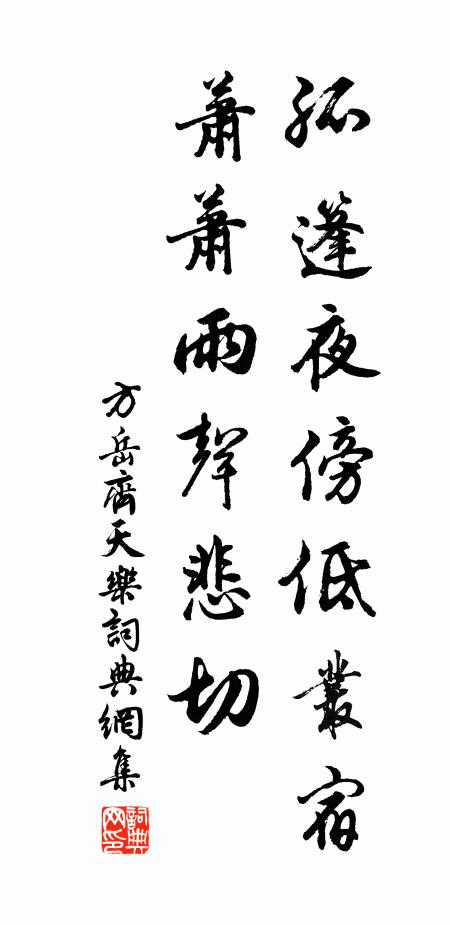 孤篷夜傍低叢宿
蕭蕭雨聲悲切
方岳齊天樂詞典網集
詞典网印